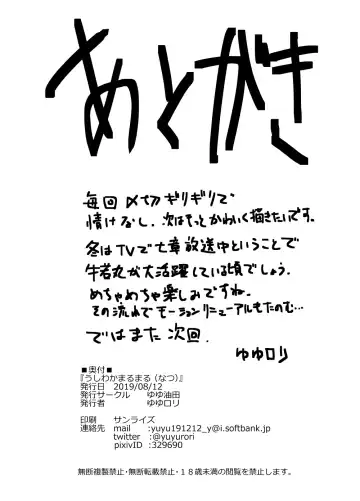 あとがき
毎回〆切ギリギリで
情けなし.次はもっとかわいく描きたいです。
冬はTVで七章放送中ということで
牛若丸が大活躍している頃でしょう.
めちゃめちゃ楽しみですね.
その流れでモーションリニューアルもたのむ…
ではまた次回.
ゆゆロリ
■奥付■
『うしわかまるまる(なつ)』
発行日 2019/08/12
発行サークル ゆゆ油田
発行者 ゆゆロリ
印刷 サンライズ
連絡先 mail :yuyu191212_y@i.softbank.jp
twitter :@yuyurori
pixivID :329690
無断複製禁止・無断転載禁止・18歳未満の閲覧を禁止します。